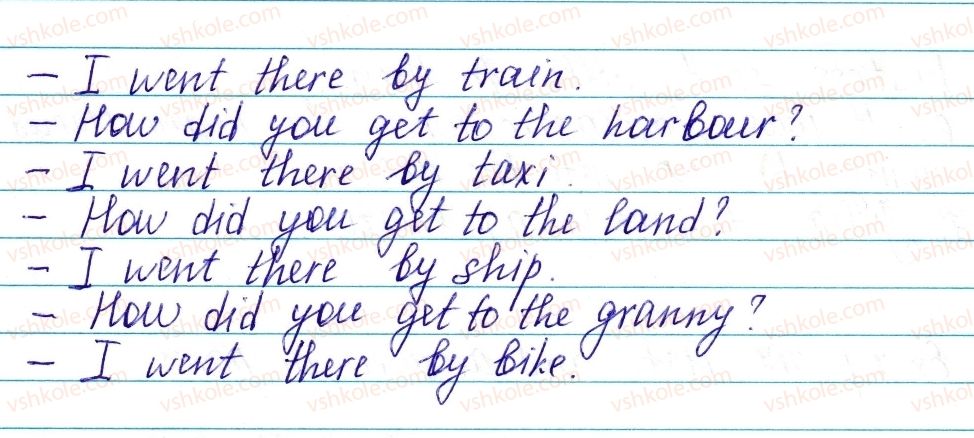 - I went there by train.
- How did you get to the harbour?
- I went there by taxi.
- How did you get to the land?
- I went there by ship.
- How did you get to the granny?
- I went there by bike.